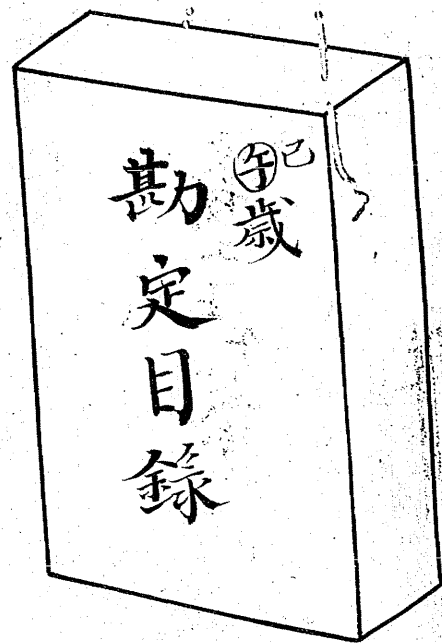 己午歳
勘定目録